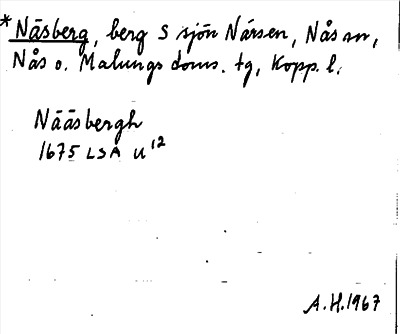 *Näsberg, berg S sjön Närsen, Nås sn,
Nås o. Malungs doms. tg, Kopp. l.
Nääsbergh
1675 LSA U12
A.H. 1967